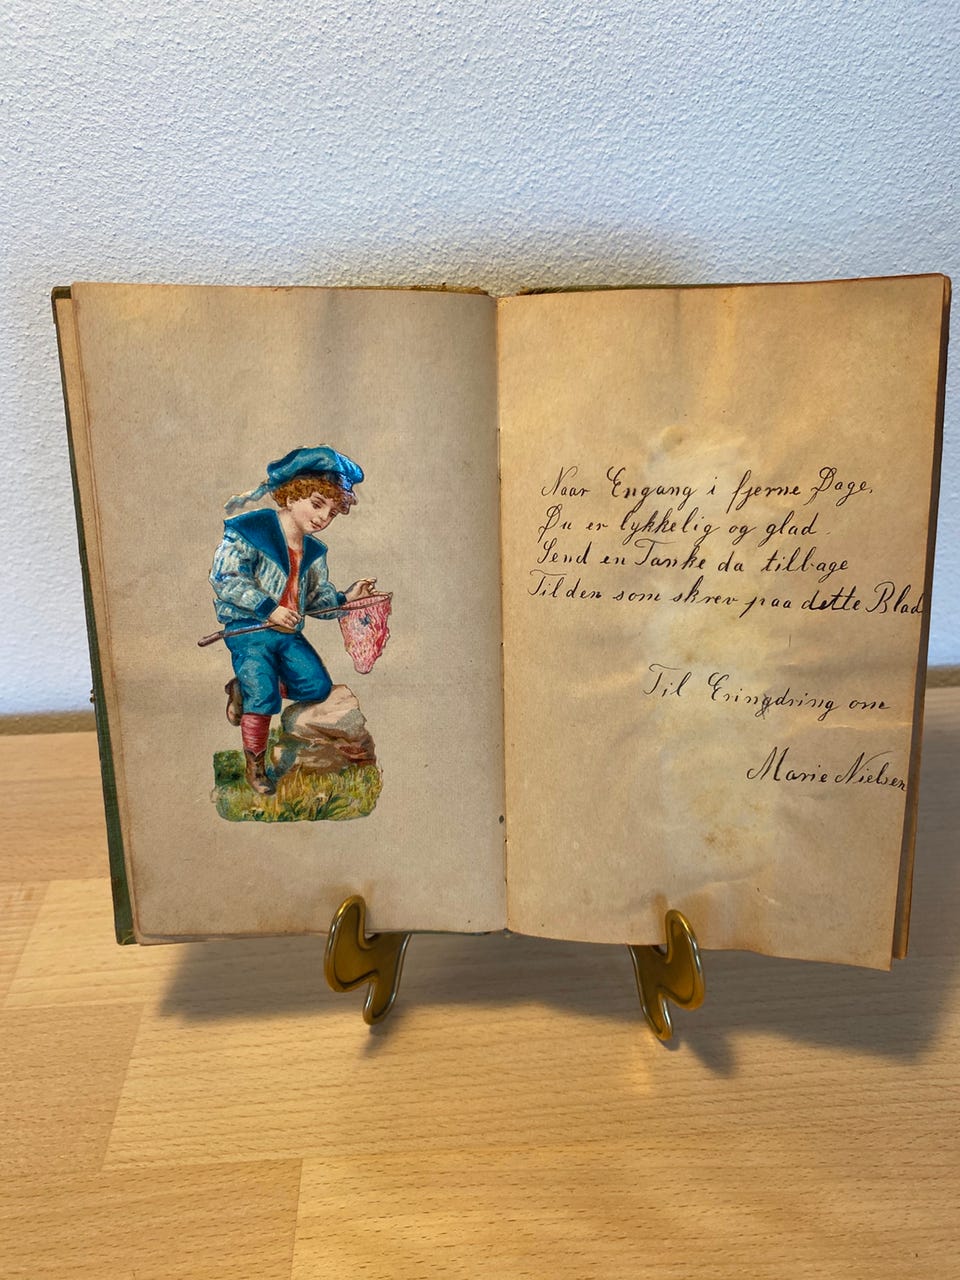 Naar Engang i fjerne Dage,
Du er lykkelig og glad.
Send en Tanke da tilbage
Til den som skrev paa dette Blad
Til Eringdring om
Marie Nielsen